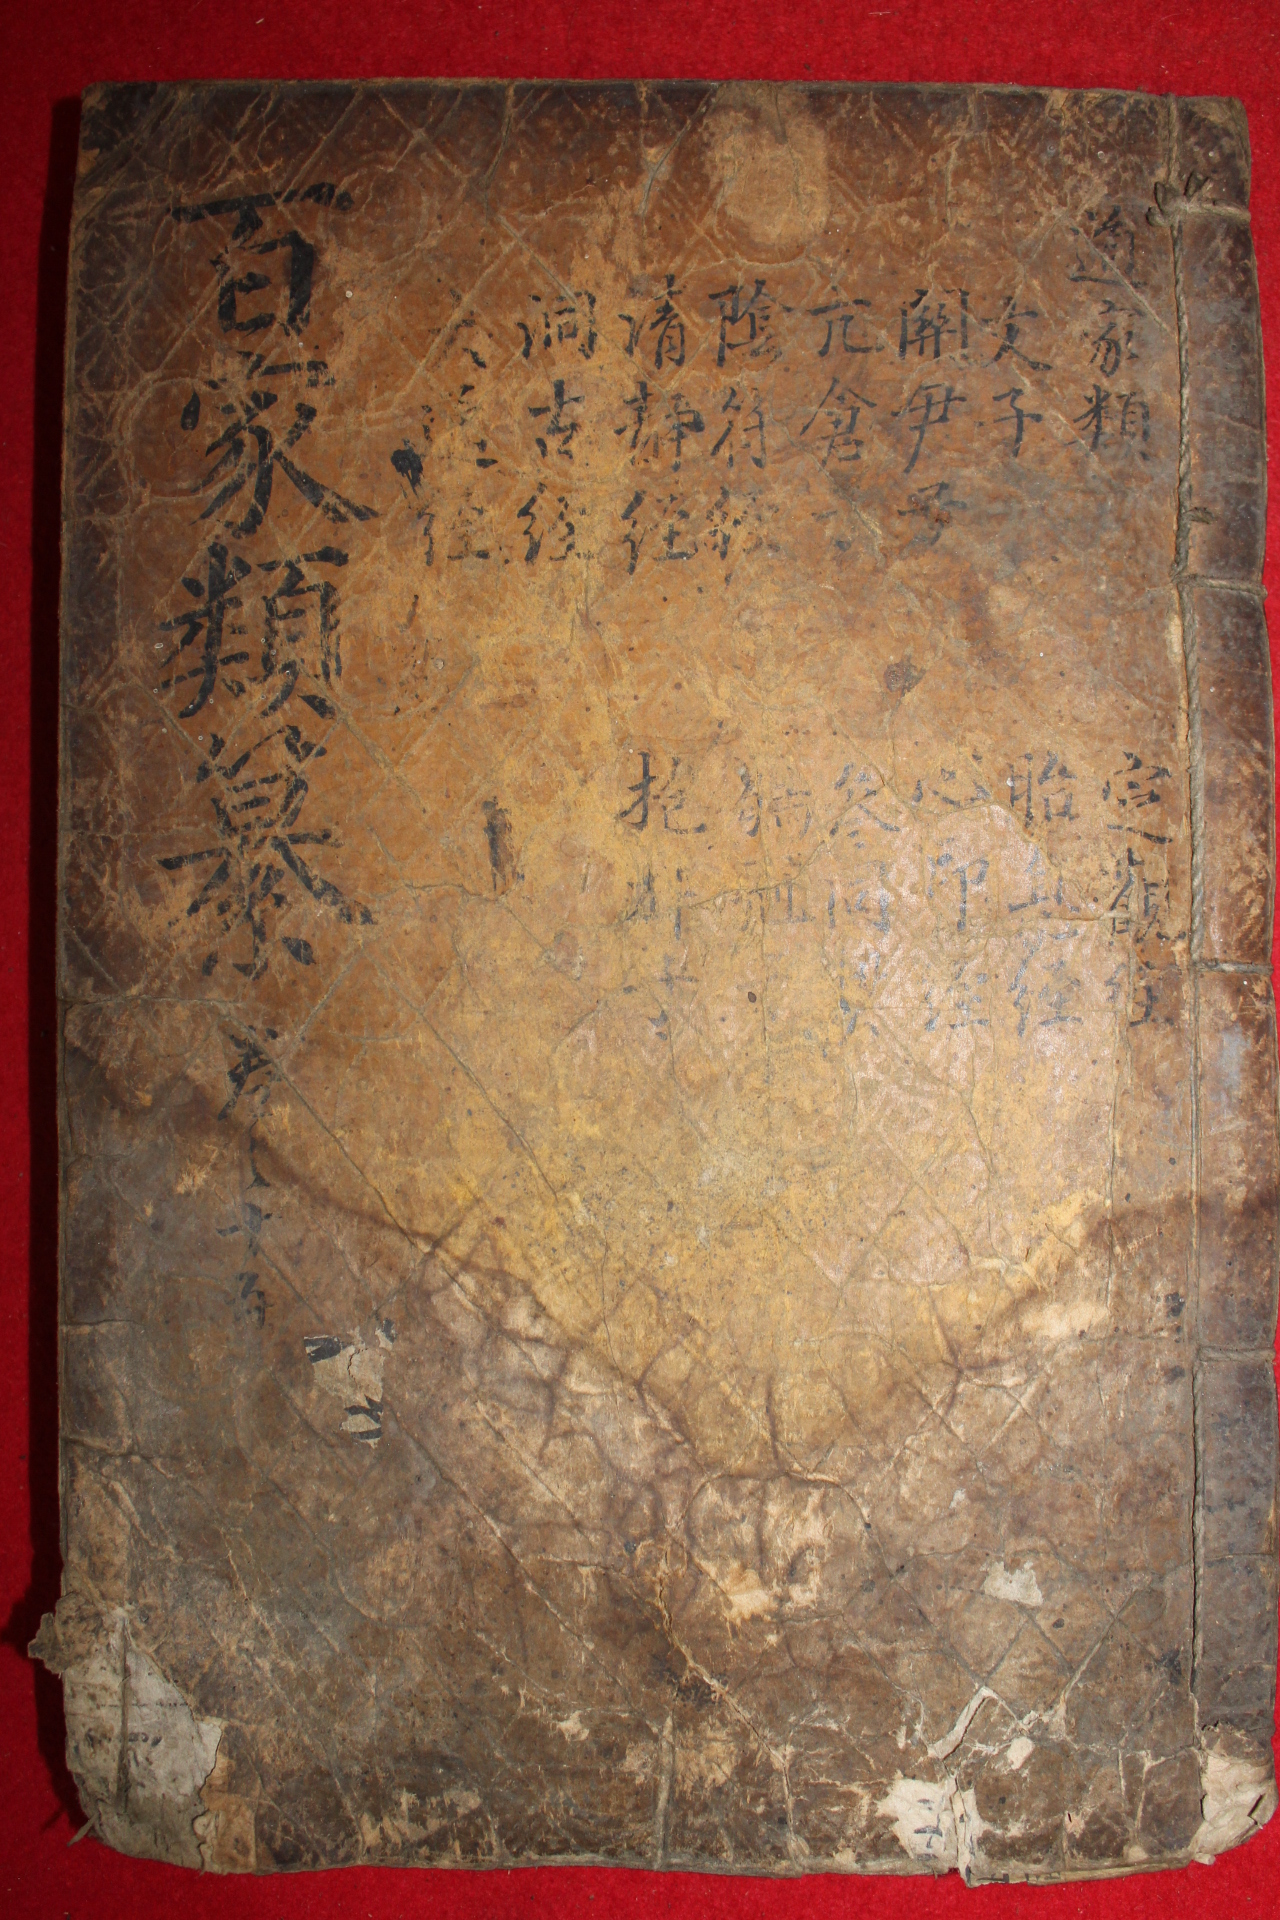 道家類
文子
關尹子
亢倉子
陰符經
清靜經
洞古經
大道經
定觀經
胎息經
心印經
參同契
抱朴子
百家類纂